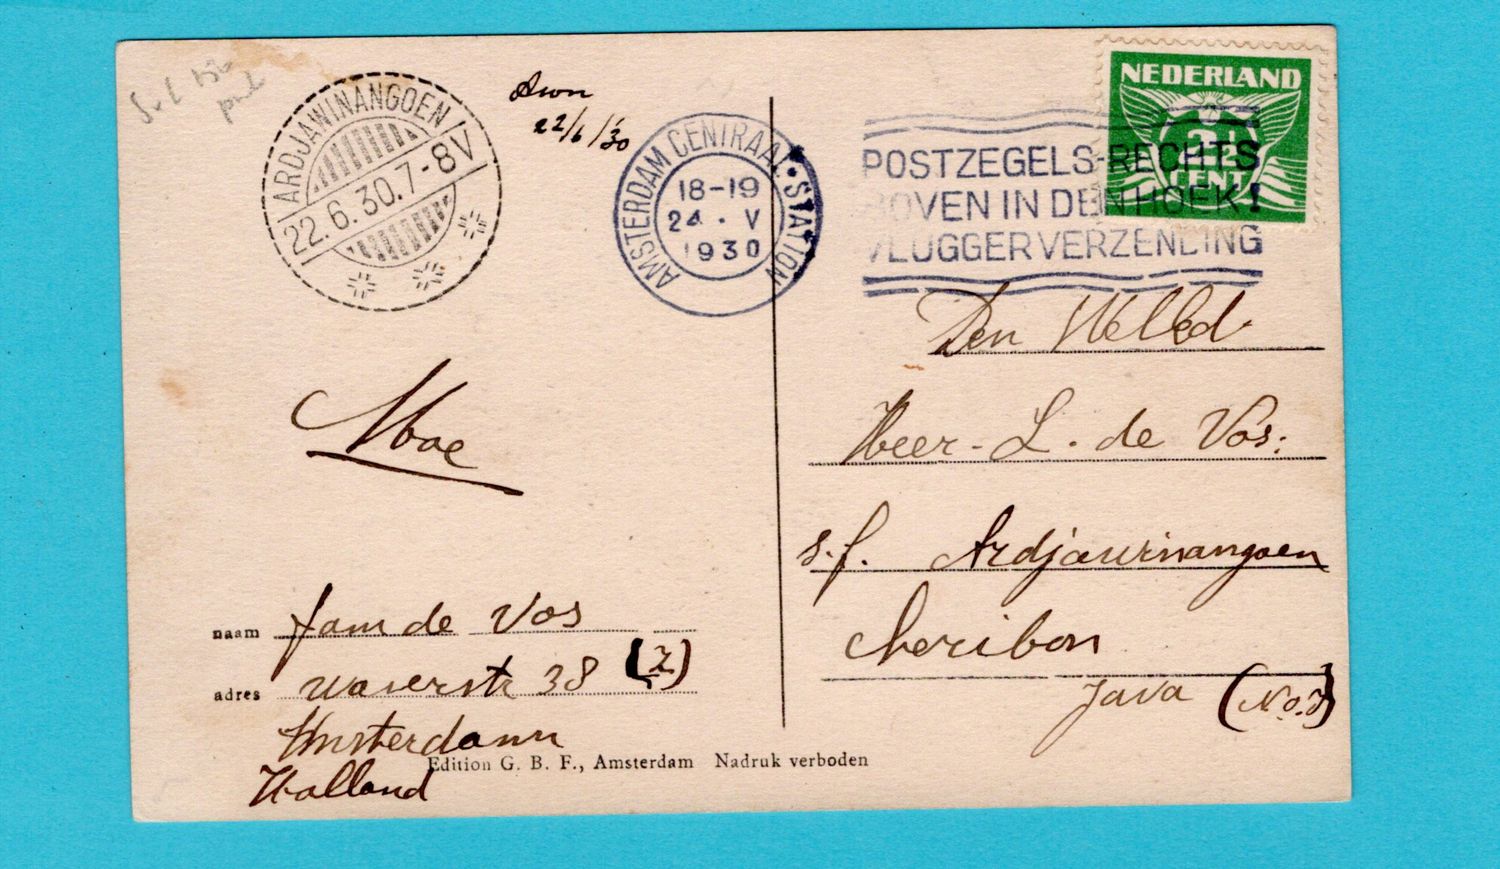 ARDJAWINANGOEN
22.6.30.7-8V
22/6/'30
AMSTERDAM CENTRAAL STATION
18-19
24 . V
1930
POSTZEGELS RECHTS
BOVEN IN DEN HOEK!
VLUGGER VERZENDING
NEDERLAND
2½
CENT
Den WelEd.
Heer - L. de Vos.
s.f. Ardjawinangoen
Cheribon
Java (N.O.I)
Moe
naam Jam de Vos
adres Waverstr 38 (Z)
Amsterdam
Holland
Edition G. B. F., Amsterdam Nadruk verboden